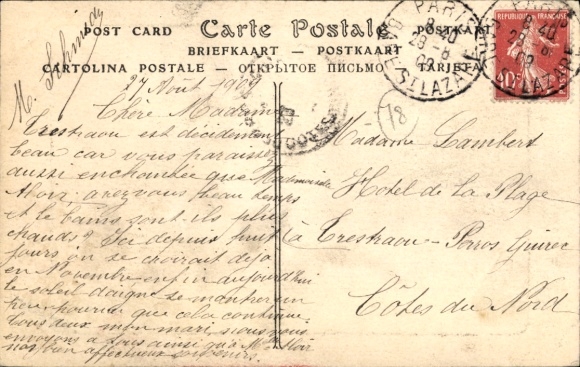 M. Schmidt
POST CARD Carte Postale POSTKART
BRIEFKAART - POSTKAART
CARTOLINA POSTALE - ОТКРЫТОЕ ПИСЬМО - TARJETA
PARIS
8-40
29-8
09
ST LAZARE
REPUBLIQUE FRANÇAISE
10c
18
27 Août 1909
Chère Madame
Trestraou est décidément
beau car vous paraissez
aussi enchantée que Mademoiselle
Moir. avez vous beau temps
et les bains sont-ils plus
chauds? Ici depuis huit
jours on se croirait déjà
en Novembre enfin aujourd'hui
le soleil daigne se montrer un
peu pourvu que cela continue.
Tous deux mon mari & vous
envoyons à tous ainsi qu'à Mlle Moir
nos bien affectueux souvenirs.
Madame Lambert
Hôtel de la Plage
à Trestraou-Perros Guirec
Côtes du Nord